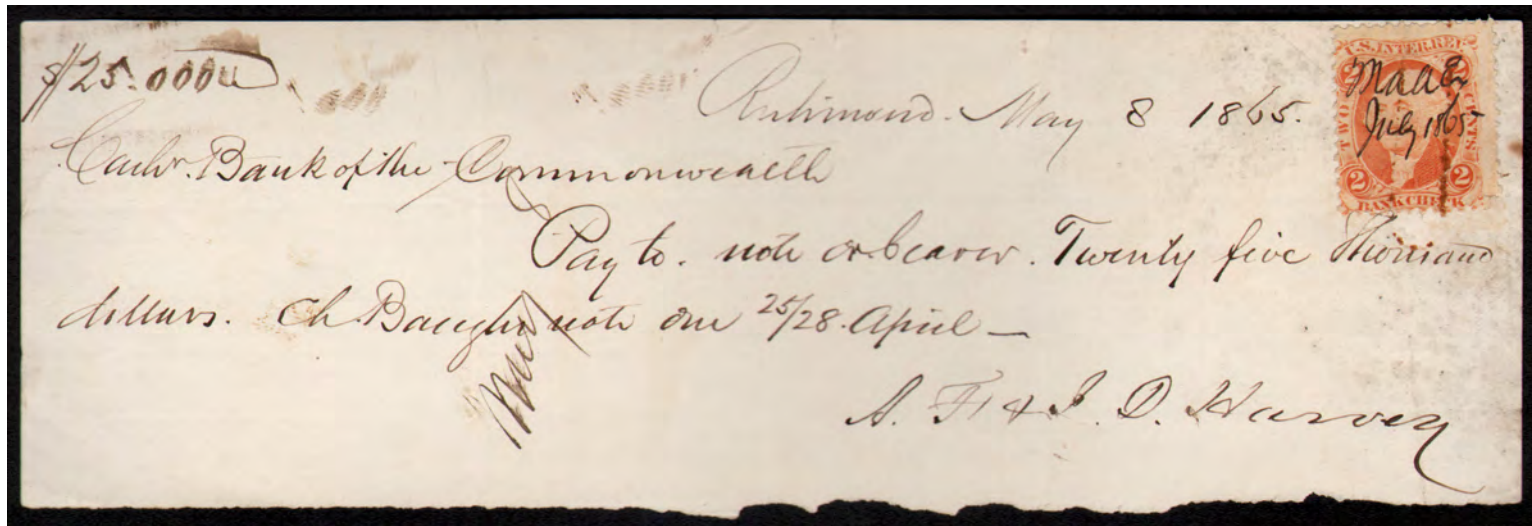 $25.000
Richmond. May 8 1865.
Cashr. Bank of the Commonwealth
Pay to. note or bearer. Twenty five Thousand
dollars. Ch. Baughn note due 25/28. April —
A. F. & J. D. Harvey
U.S. INTER. REV.
2 2
TWO CENTS
July 1865
2 2
BANK CHECK